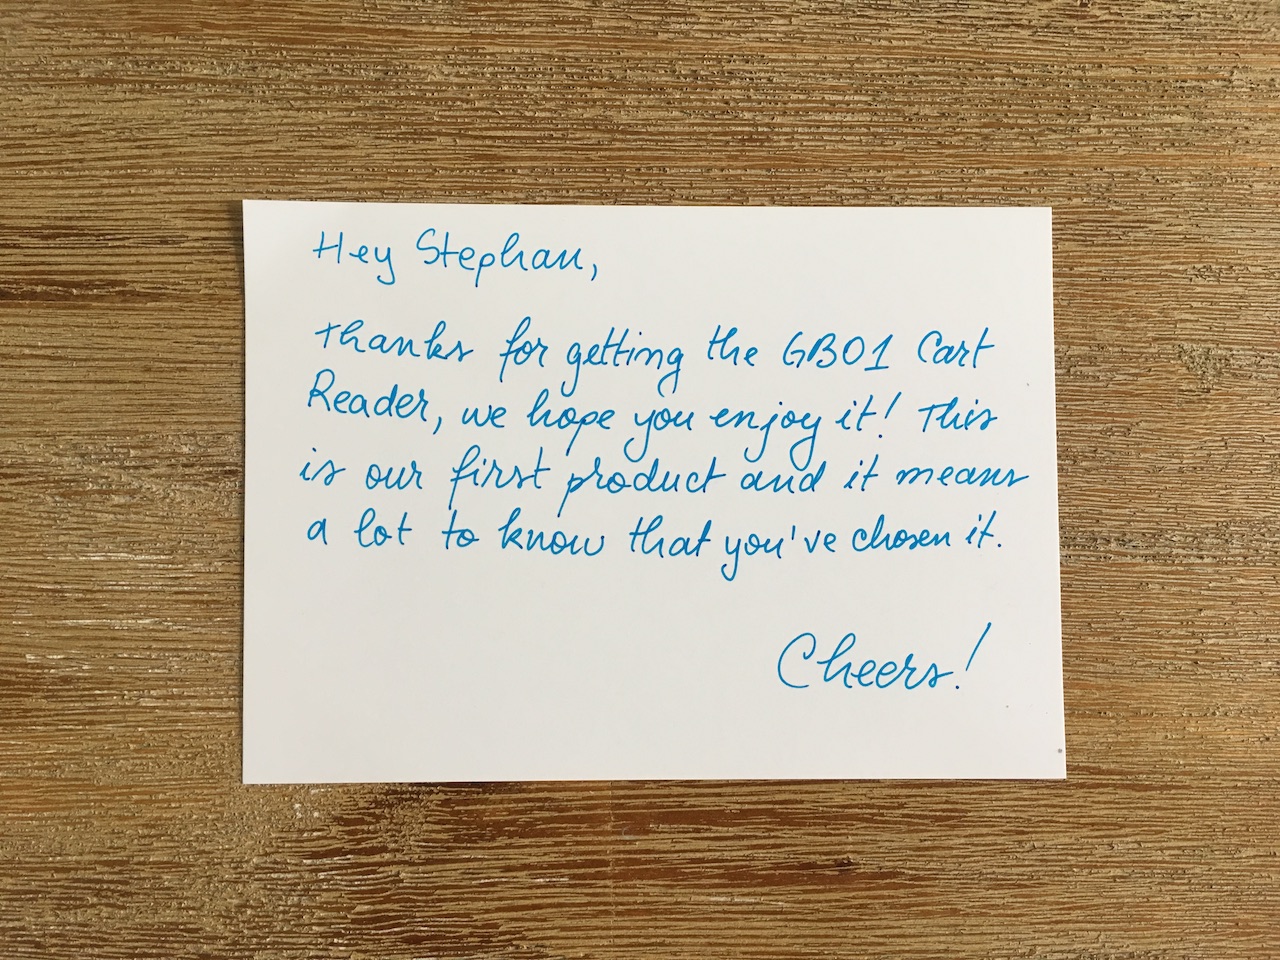 Hey Stephan,
Thanks for getting the GB01 Cart
Reader, we hope you enjoy it! This
is our first product and it means
a lot to know that you've chosen it.
Cheers!